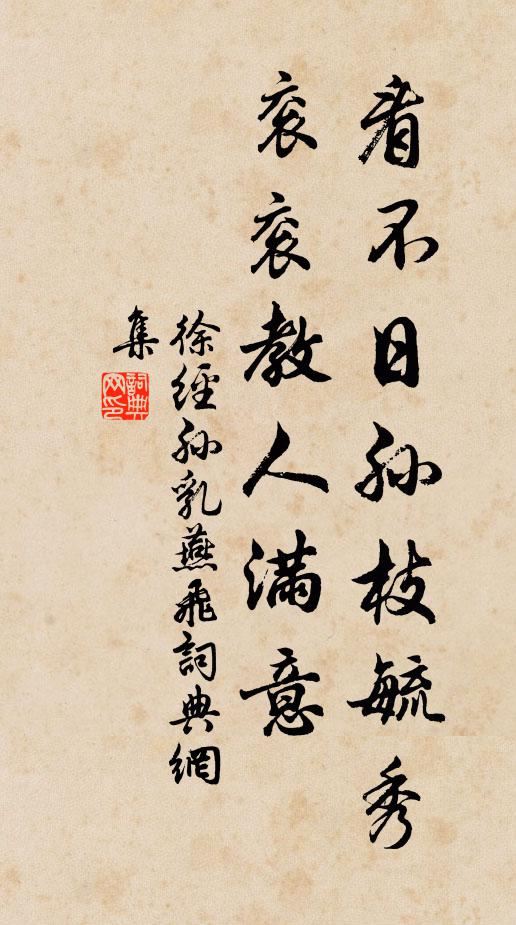 看不日孙枝毓秀
衮衮教人满意
徐經孙乳燕飛詞典網
集
詞典
网印